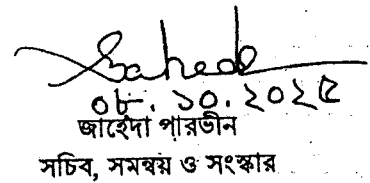 ০৮. ১০. ২০২৫
জাহেদা পারভীন
সচিব, সমন্বয় ও সংস্কার